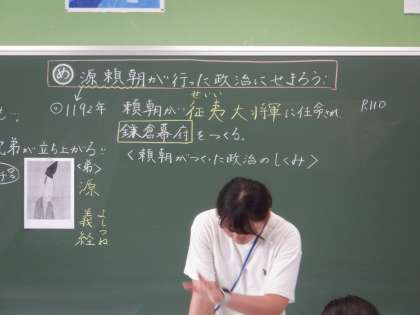 め 源頼朝が行った政治にせまろう!
・1192年 頼朝が征夷大将軍に任命され P.110
せいい
鎌倉幕府をつくる。
兄弟が立ち上がる!!
<頼朝がつくった政治のしくみ>
<弟>
源
義経
よしつね